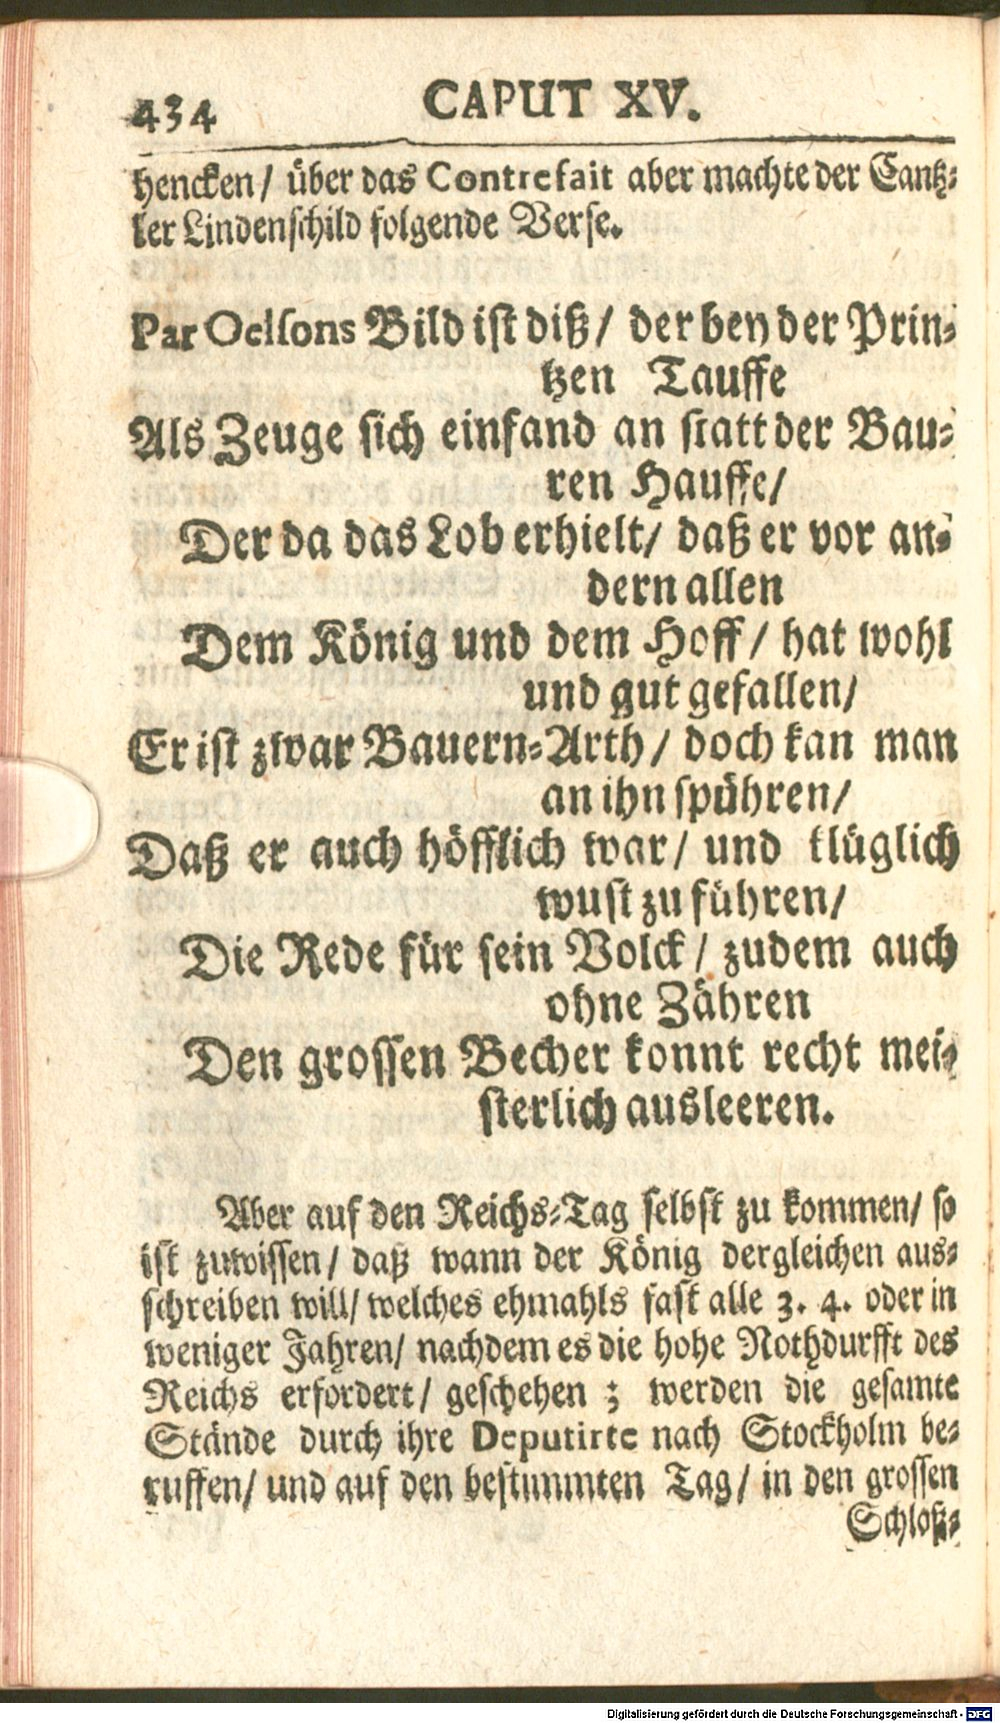 434 CAPUT XV.
hencken/ über das Contrefait aber machte der Cantz-
ler Lindenschild folgende Verse.
Par Oelsons Bild ist diß/ der bey der Prin-
tzen Tauffe
Als Zeuge sich einfand an statt der Bau-
ren Hauffe/
Der da das Lob erhielt/ daß er vor an-
dern allen
Dem König und dem Hoff/ hat wohl
und gut gefallen/
Er ist zwar Bauern-Arth/ doch kan man
an ihn spühren/
Daß er auch höfflich war/ und klüglich
wust zu führen/
Die Rede für sein Volck/ zudem auch
ohne Zähren
Den grossen Becher konnt recht mei-
sterlich ausleeren.
Aber auf den Reichs-Tag selbst zu kommen/ so
ist zuwissen/ daß wann der König dergleichen aus-
schreiben will/ welches ehmahls fast alle 3. 4. oder in
weniger Jahren/ nachdem es die hohe Nothdurfft des
Reichs erfordert/ geschehen; werden die gesamte
Stände durch ihre Deputirte nach Stockholm be-
ruffen/ und auf den bestimmten Tag/ in den grossen
Schloß-
Digitalisierung gefördert durch die Deutsche Forschungsgemeinschaft - DFG